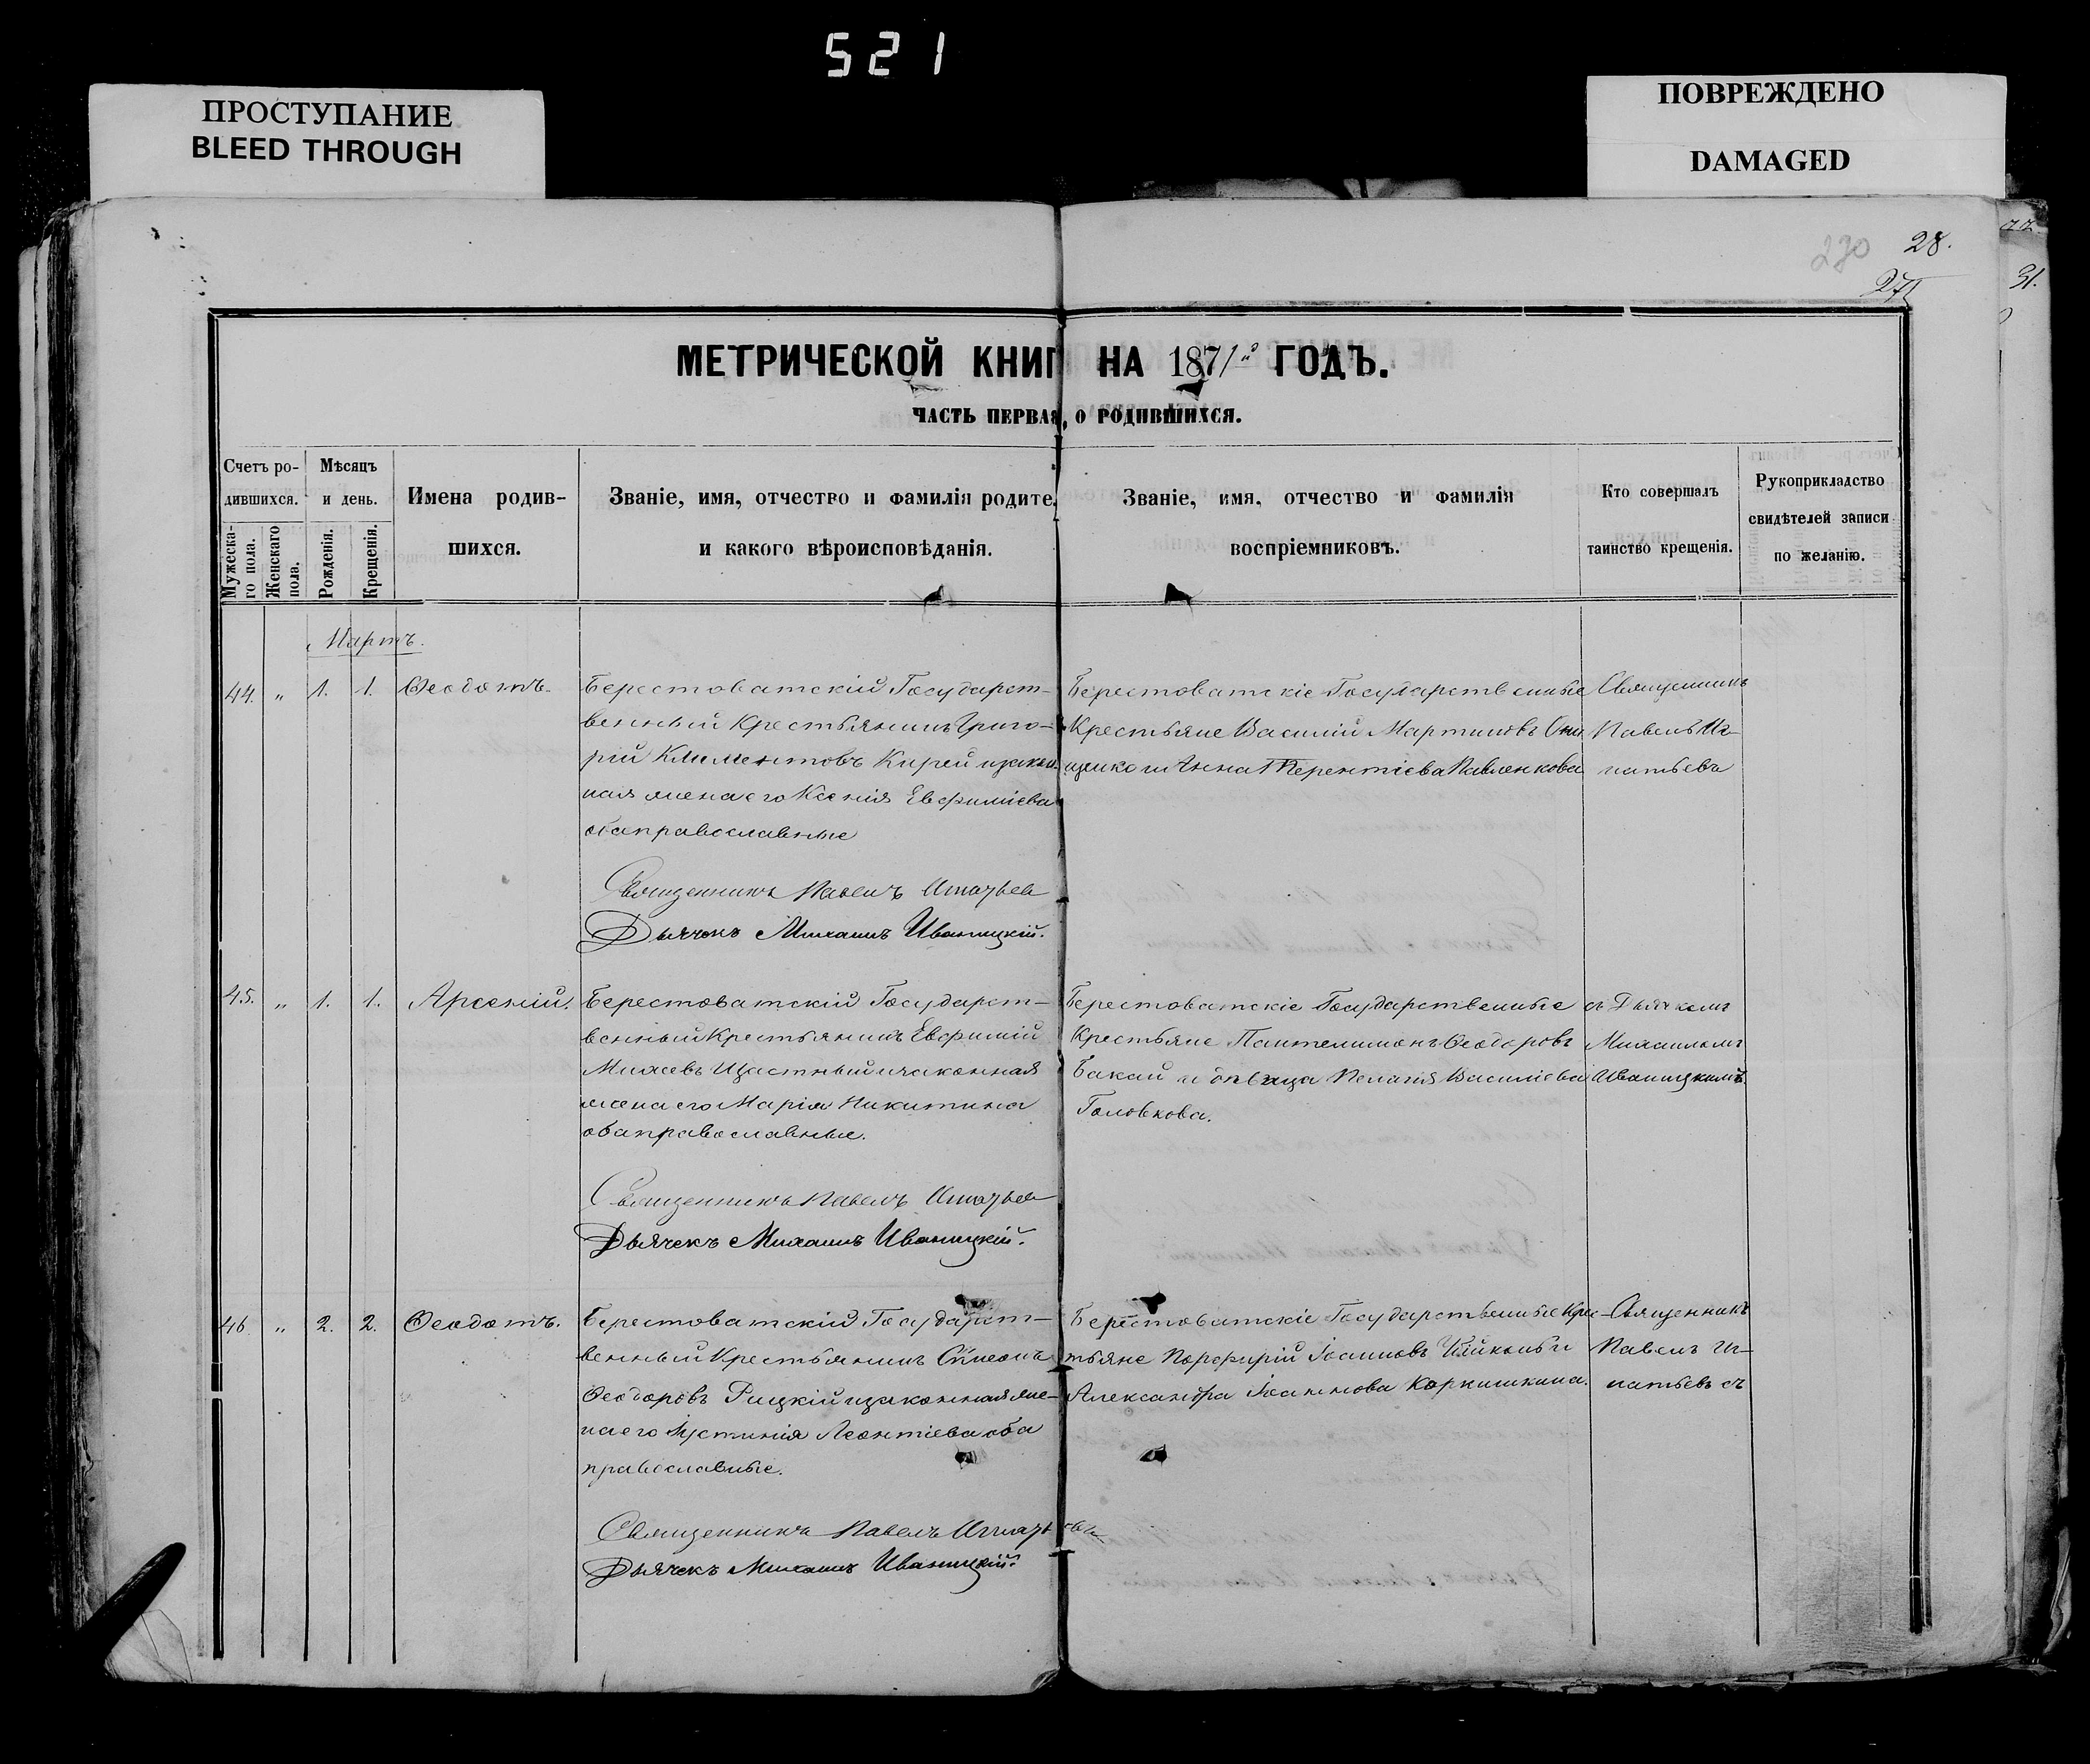 521
ПРОСТУПАНИЕ
BLEED THROUGH
ПОВРЕЖДЕНО
DAMAGED
230
28.
27
31.
МЕТРИЧЕСКОЙ КНИГ НА 1871й ГОДЪ.
ЧАСТЬ ПЕРВАЯ, О РОДИВШИХСЯ.
Счетъ ро-
дившихся.
Мужеска-
го пола.
Женскаго
пола.
Мѣсяцъ
и день.
Рожденія.
Крещенія.
Имена родив-
шихся.
Званіе, имя, отчество и фамилія родите
и какого вѣроисповѣданія.
Званіе, имя, отчество и фамилія
воспріемниковъ.
Кто совершалъ
таинство крещенія.
Рукоприкладство
свидѣтелей записи
по желанію.
Мартъ.
44. " 1. 1. Ѳеодотъ.
Берестоватскій Государст-
венный Крестьянинъ Григо-
рій Климентовъ Кирей изакон
ная жена его Ксенія Евфиміева
оба православные
Священникъ Павелъ Игнатьев
Дьячекъ Михаилъ Иваницкій.
Берестоватскіе Государственные
Крестьяне Василій Мартиновъ Они
щенко и Анна Терентіева Павленкова
Священникъ
Павелъ Иг-
натьевъ
45. " 1. 1. Арсеній.
Берестоватскій Государст-
венный Крестьянинъ Евфимій
Щастный изаконная
жена его Марія Никитина
оба православные.
Священникъ Павелъ Игнатьев
Дьячекъ Михаилъ Иваницкій.
Берестоватскіе Государственные
Крестьяне Пантелимонъ Ѳеодоровъ
Бакай и дѣвица Пелагія Василіева
Головкова.
съ Дьячкомъ
Михаиломъ
Иваницкимъ.
46. " 2. 2. Ѳеодотъ.
Берестоватскій Государст-
венный Крестьянинъ Симеонъ
Ѳеодоровъ Рицкій изаконная же-
на его Іустинія Леонтіева оба
православные.
Священникъ Павелъ Игнатьев
Дьячекъ Михаилъ Иваницкій.
Берестоватскіе Государственные Крес-
тьяне Порфирій Іоанновъ и
Александра Іоаннова Коркишкина.
Священникъ
Павелъ Иг-
натьевъ съ